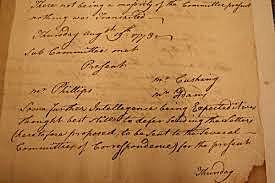 There not being a majority of the Committee present
nothing was Transacted.
Thursday augt 19th 1773.
Sub Committee met
Present
mr Cushing
mr Phillips mr Adams
Some further Intelligence being Expected it was
thought best still to defer sending the Letter
(heretofore proposed to be sent to the several
Committees of Correspondence) for the present
Thursday